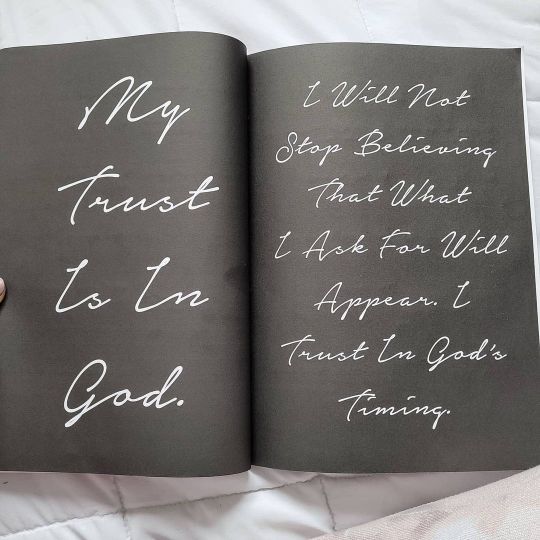 My
Trust
Is In
God.
I Will Not
Stop Believing
That What
I Ask For Will
Appear. I
Trust In God's
Timing.